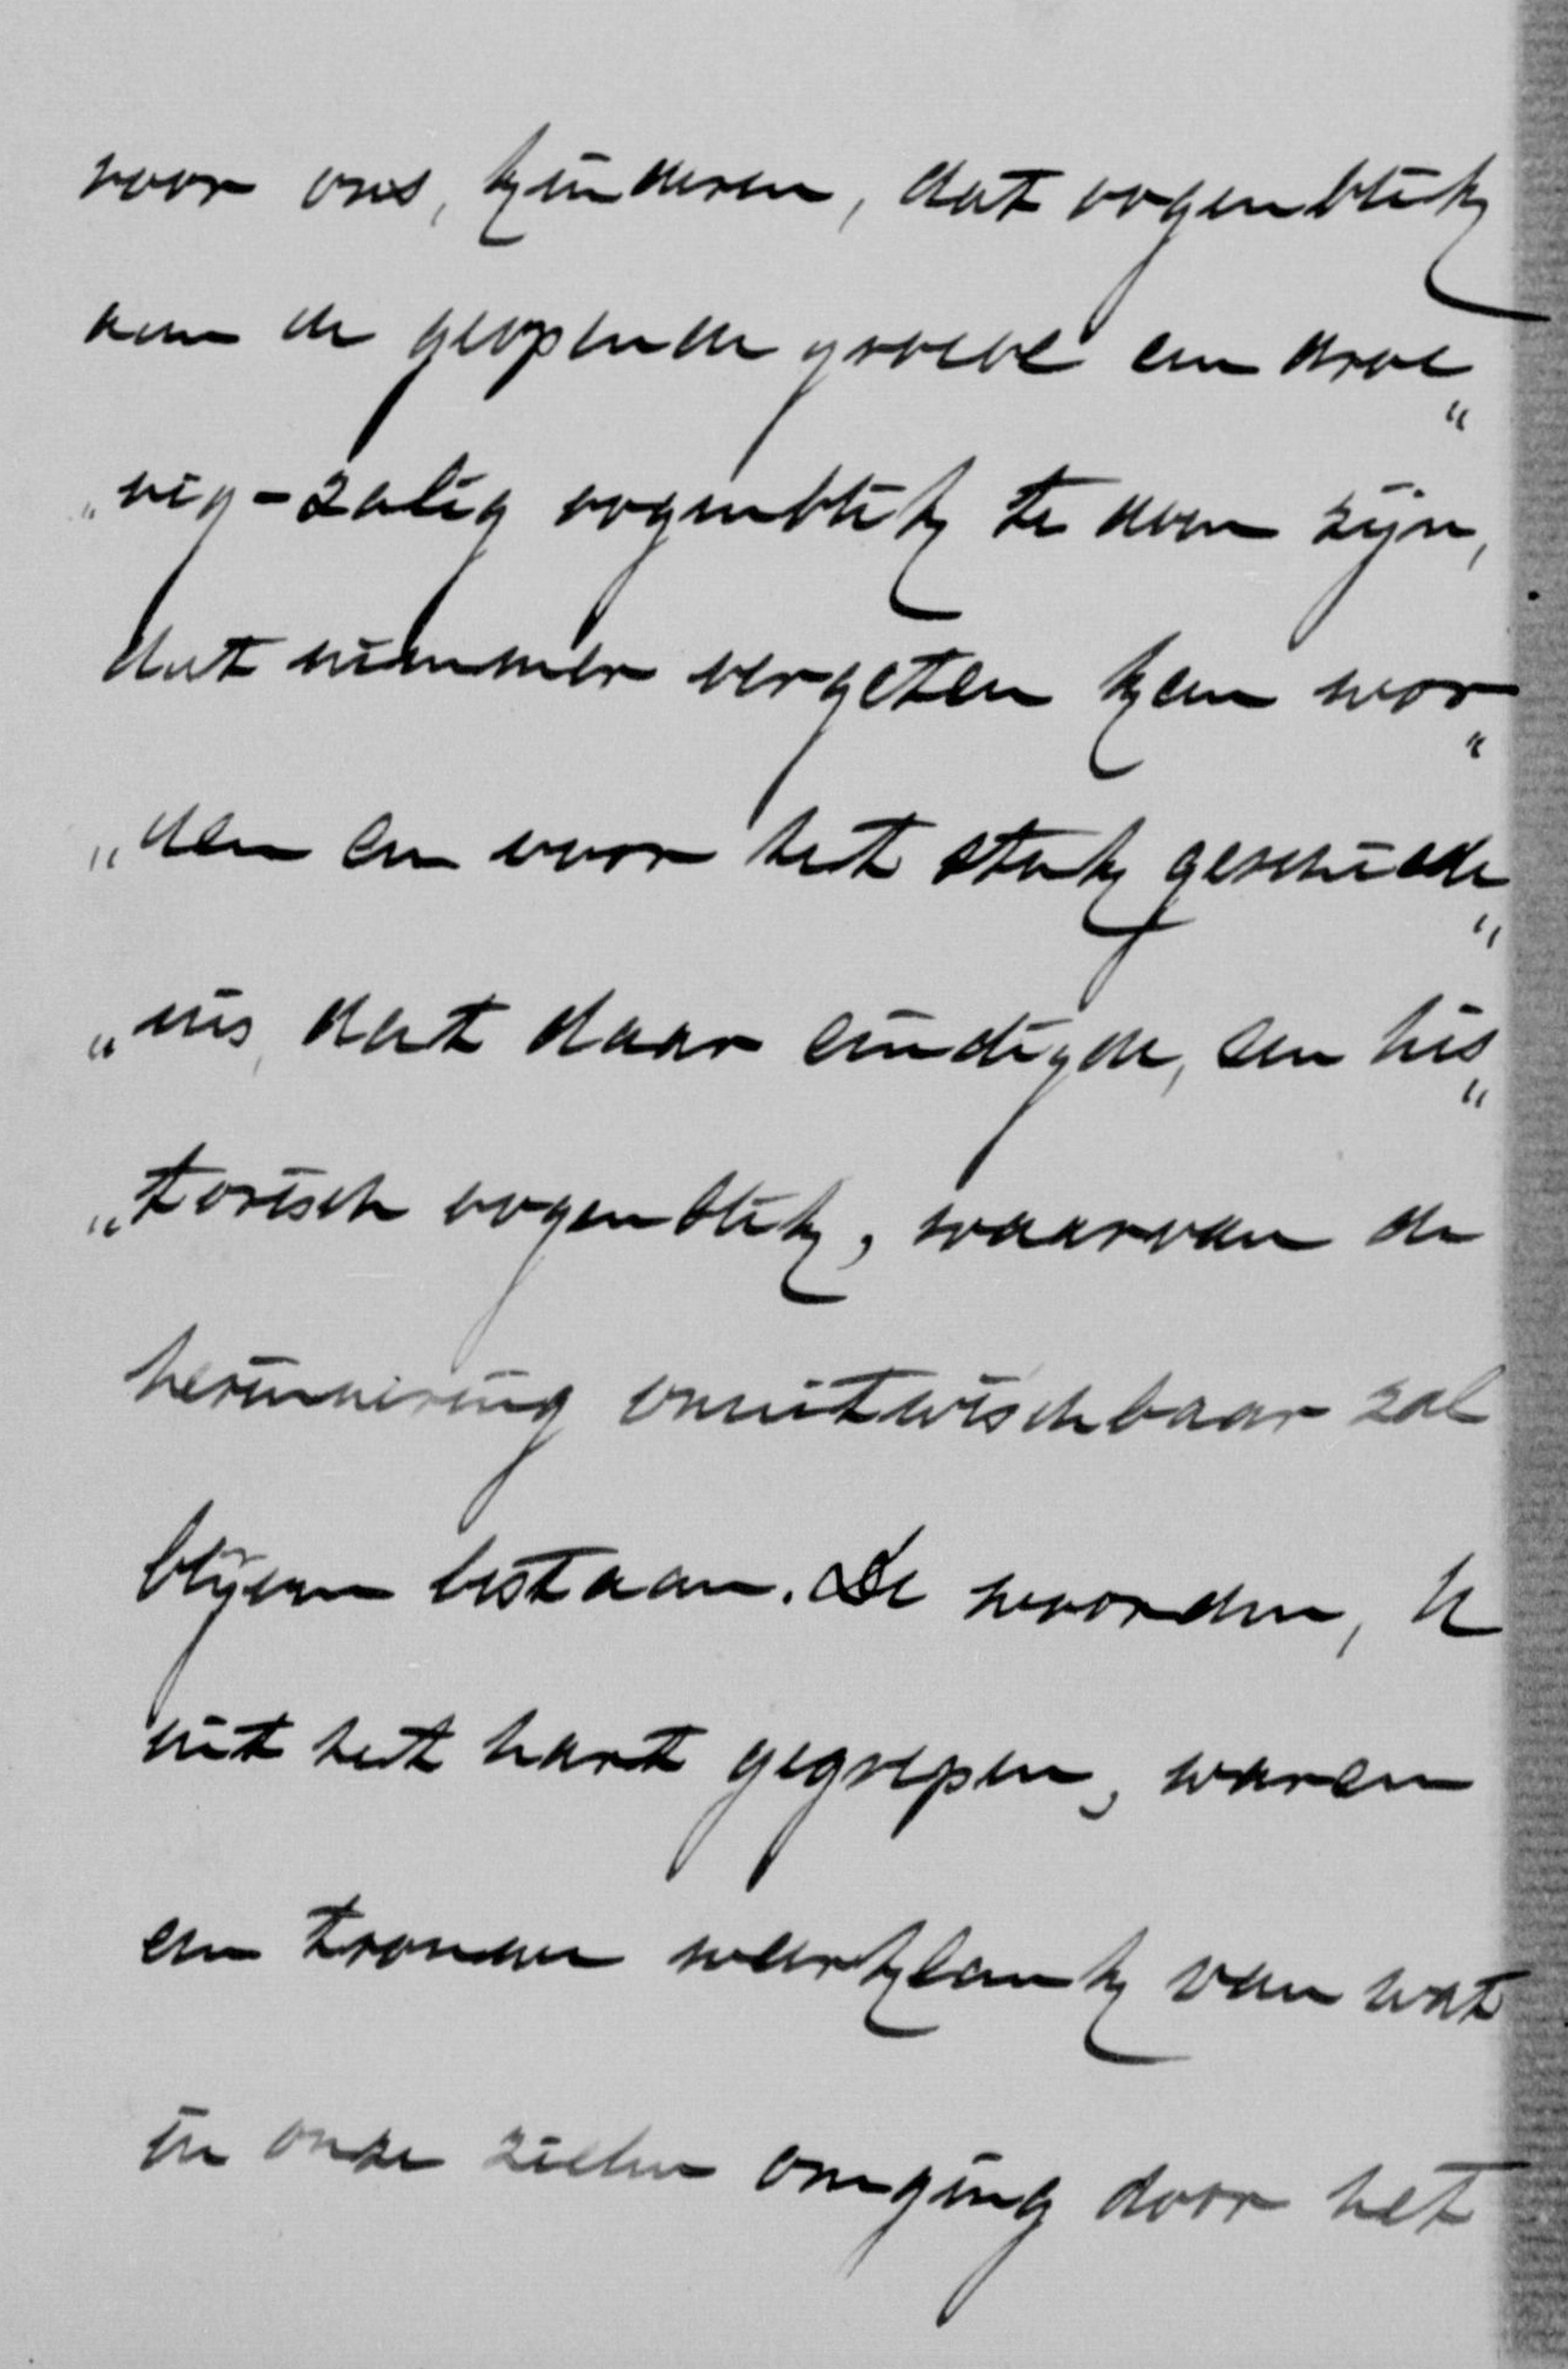 voor ons, kinderen, dat oogenblik
aan de geopende groeve een droe„
„vig-zalig oogenblik te doen zijn,
dat nimmer vergeten kan wor„
„den en voor het stuk geschiede„
„nis, dat daar eindigde, een his„
„torisch oogenblik, waarvan de
herinnering onuitwischbaar zal
blijven bestaan. De woorden, U
uit het hart gegrepen, waren
een trouwe weerklank van wat
in onze zielen omging door het